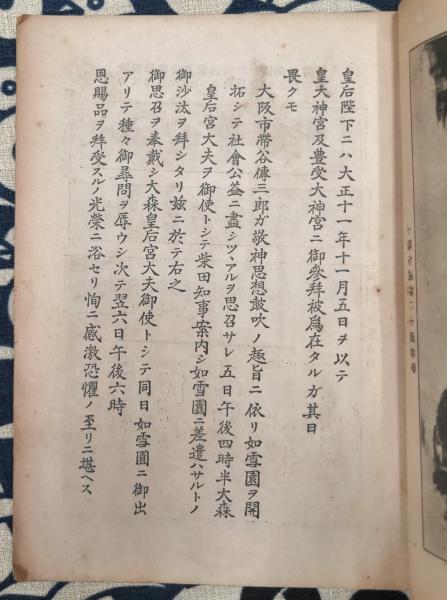 皇后陛下ニハ大正十一年十一月五日ヲ以テ
皇大神宮及豊受大神宮ニ御參拜被爲在タルガ其日
畏クモ
大阪市帶谷傳三郎ガ敬神思想鼓吹ノ趣旨ニ依リ如雪園ヲ開
拓シテ社會公益ニ盡シツヽアルヲ思召サレ五日午後四時半大森
皇后宮大夫ヲ御使トシテ柴田知事案内シ如雪園ニ差遣ハサルトノ
御沙汰ヲ拜シタリ玆ニ於テ右之
御思召ヲ奉戴シ大森皇后宮大夫御使トシテ同日如雪園ニ御出
アリテ種々御尋問ヲ辱ウシ次テ翌六日午後六時
恩賜品ヲ拜受スルノ光榮ニ浴セリ恂ニ感激恐懼ノ至リニ堪ヘス